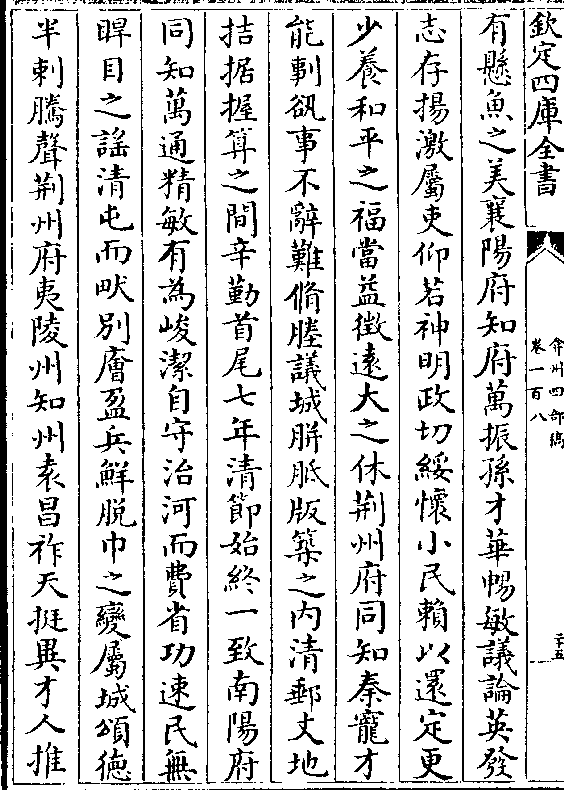 欽定四庫全書
弇州四部稿
卷一百八
二十五
有懸魚之美襄陽府知府萬振孫才華暢敏議論英發
志存揚激屬吏仰若神明政切綏懷小民賴以還定更
少養和平之福當益徵遠大之休荆州府同知秦寵才
能剸㡿事不辭難脩塍議城胼胝版築之内清郵丈地
拮据握算之間辛勤首尾七年清節始終一致南陽府
同知萬通精敏有為峻潔自守治河而費省功速民無
睅目之謡清屯而畎別廥盈兵鮮脱巾之變屬城頌德
半刺騰聲荆州府夷陵州知州袁昌祚天挺異才人推